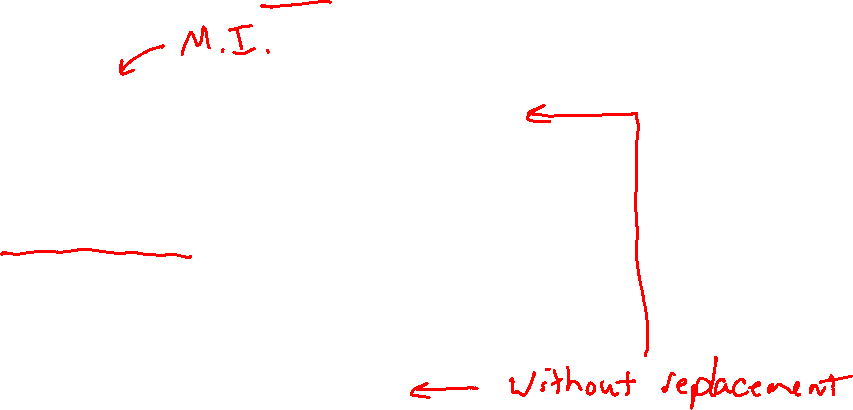 M.I.
Without replacement